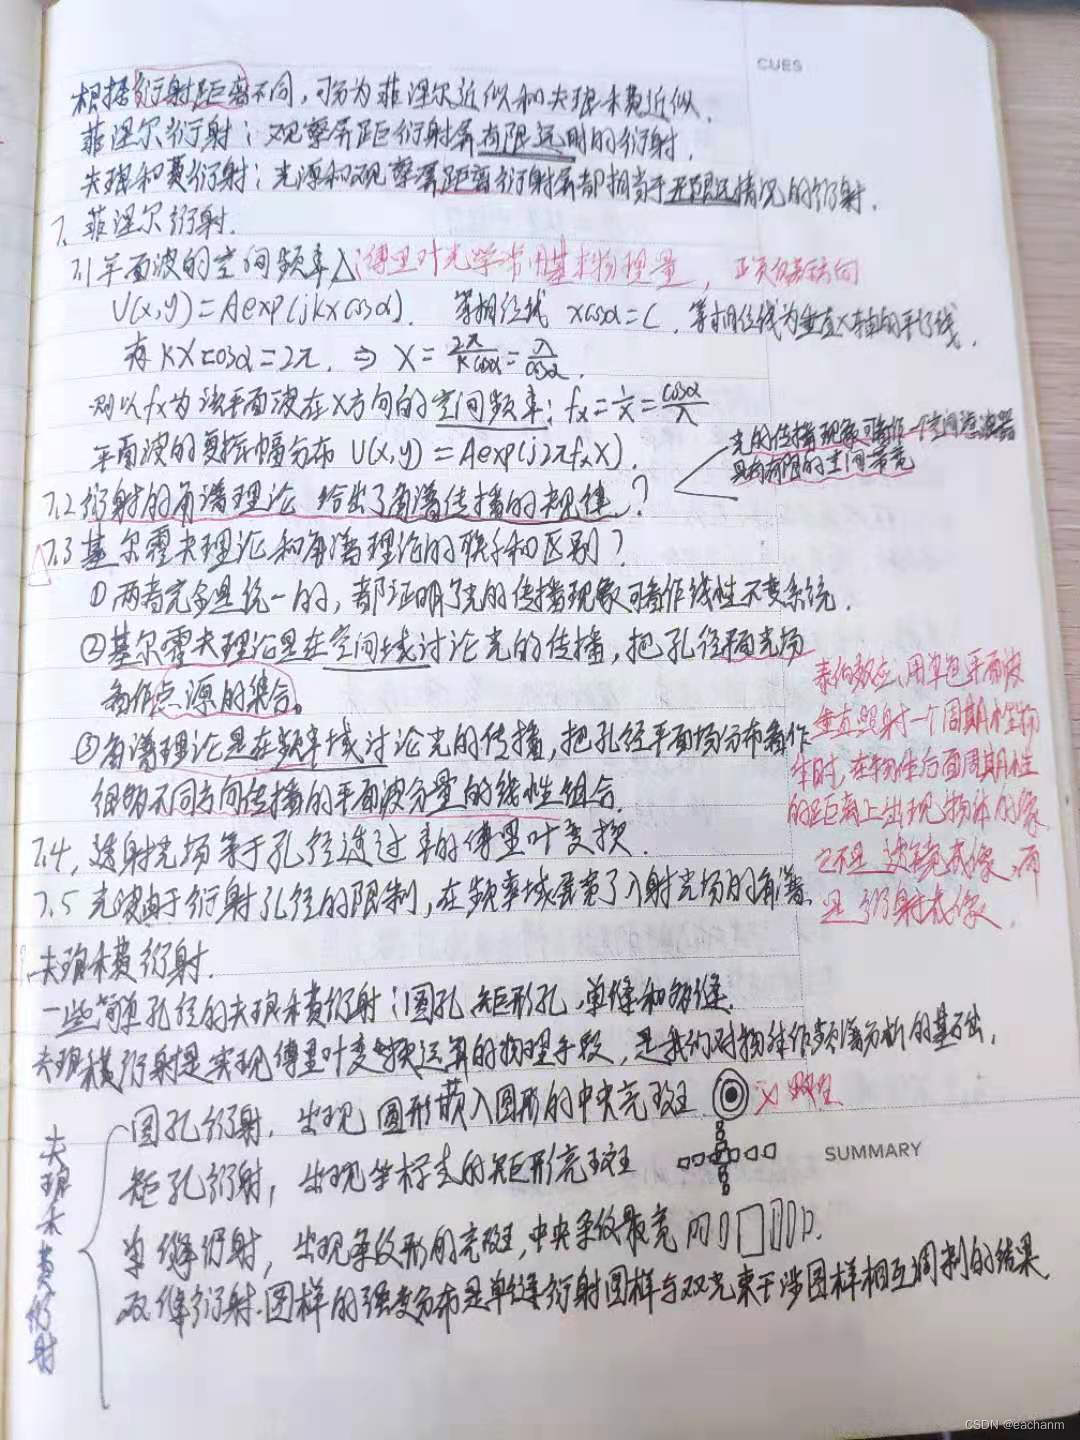 CUES
根据衍射距离不同,可分为菲涅尔近似和夫琅禾费近似.
菲涅尔衍射:观察屏距衍射屏有限远时的衍射.
夫琅和费衍射:光源和观察屏距离衍射屏都相当于无限远情况的衍射.
7. 菲涅尔衍射.
7.1 平面波的空间频率:傅里叶光学常用基本物理量,正负表示传播方向
U(x,y)=Aexp(jkxcosα). 等相位线 xcosα=C. 等相位线为垂直x轴的平行线.
有 kXcosα=2π. ⇒ X=2π/kcosα=λ/cosα.
则以fx为该平面波在X方向的空间频率: fx=1/X=cosα/λ
平面波的复振幅分布 U(x,y)=Aexp(j2πfxX).
光的传播现象可看作一个空间滤波器
具有有限的空间带宽
7.2 衍射的角谱理论 给出了角谱传播的规律?
△7.3 基尔霍夫理论和角谱理论的联系和区别?
①两者完全是统一的,都证明了光的传播现象可看作线性不变系统.
②基尔霍夫理论是在空间域讨论光的传播,把孔径平面光场
看作点源的集合。
③角谱理论是在频率域讨论光的传播,把孔径平面场分布看作
很多不同方向传播的平面波分量的线性组合.
泰伯效应、用单色平面波
垂直照射一个周期性物
体时,在物体后面周期性
的距离上出现物体的像.
它不是透镜成像,而
是衍射成像.
7.4, 透射光场等于孔径透过率的傅里叶变换.
7.5 光波由于衍射孔径的限制,在频率域展宽了入射光场的角谱.
夫琅禾费衍射.
一些简单孔径的夫琅禾费衍射:圆孔,矩形孔,单缝和多缝.
夫琅禾费衍射是实现傅里叶变换运算的物理手段,是我们对物体作频谱分析的基础.
夫琅禾费衍射
圆孔衍射,出现圆形嵌入圆形的中央亮斑
矩孔衍射,出现坐标式的矩形亮斑
SUMMARY
单缝衍射,出现条纹形的亮斑,中央条纹最宽
双缝衍射.图样的强度分布是单缝衍射图样与双光束干涉图样相互调制的结果
CSDN @eachanm